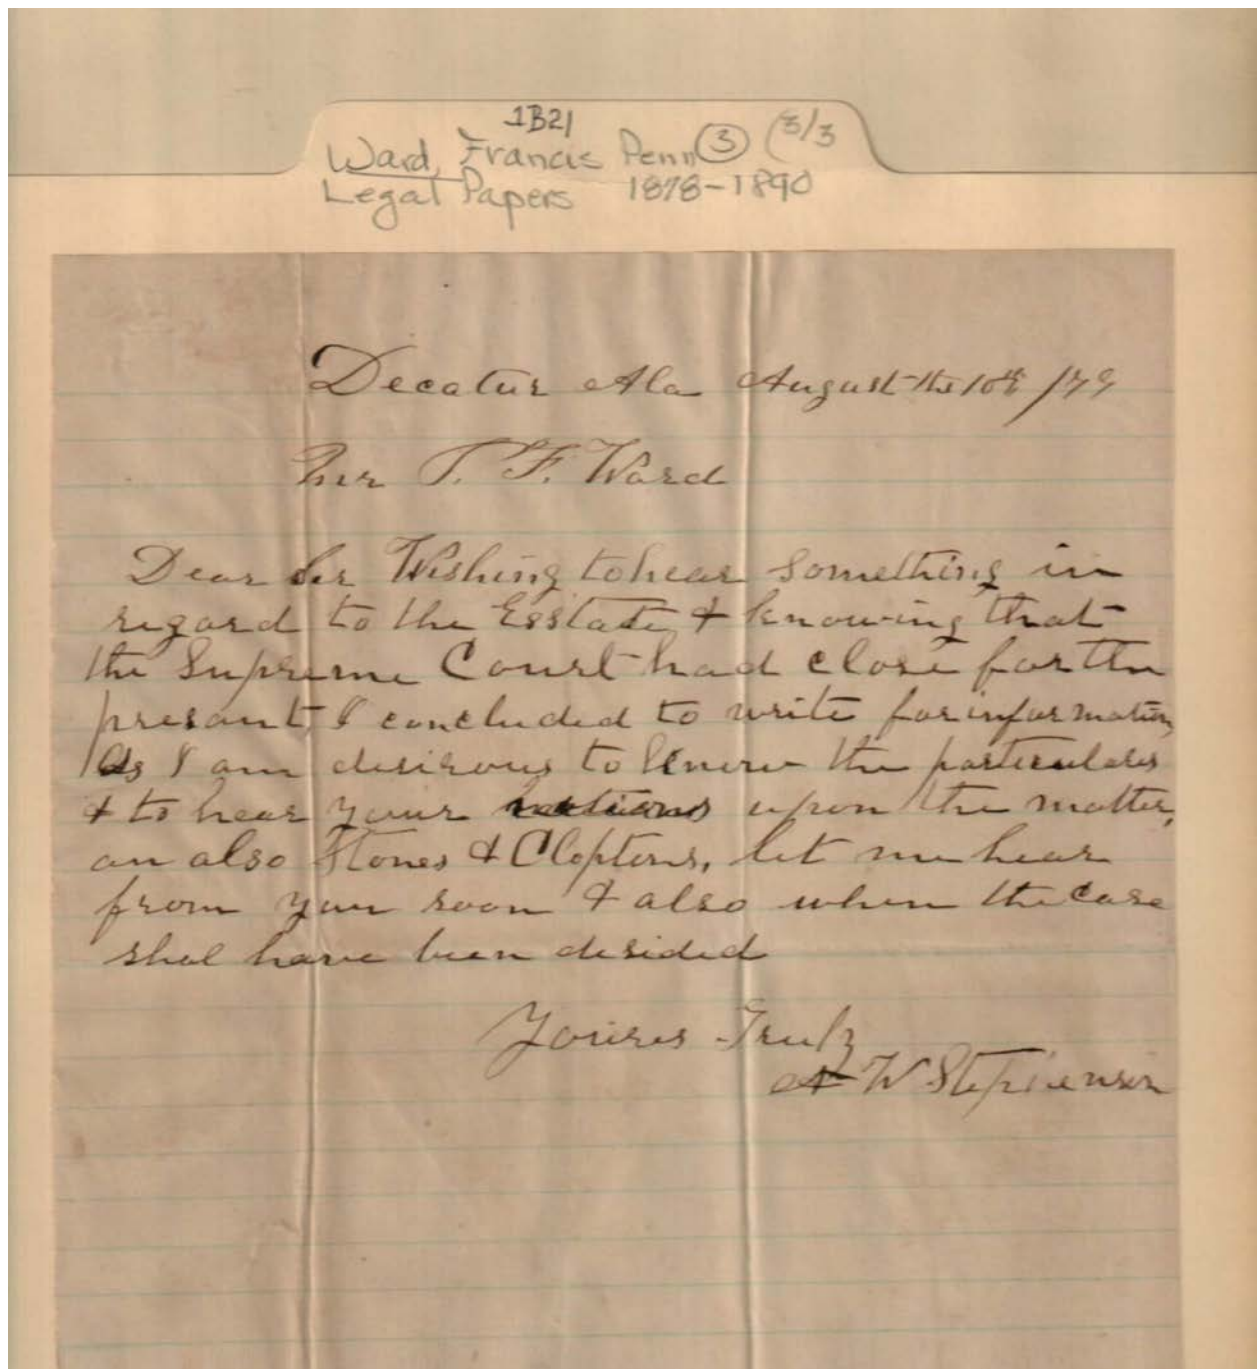 1B21
Ward, Francis Penn ③ (3/3
Legal Papers 1878-1890
Decatur Ala August the 10th /79
Mr T. F. Ward
Dear Sir Wishing to hear something in
regard to the Esstate & knowing that
the Supreme Court had close for the
presant, I concluded to write for information
As I am desirous to know the particulars
& to hear your notions upon the matter,
an also Stones & Cloptons, let me hear
from you soon & also when the case
shal have been desided
Youres Truly
W Stephenson